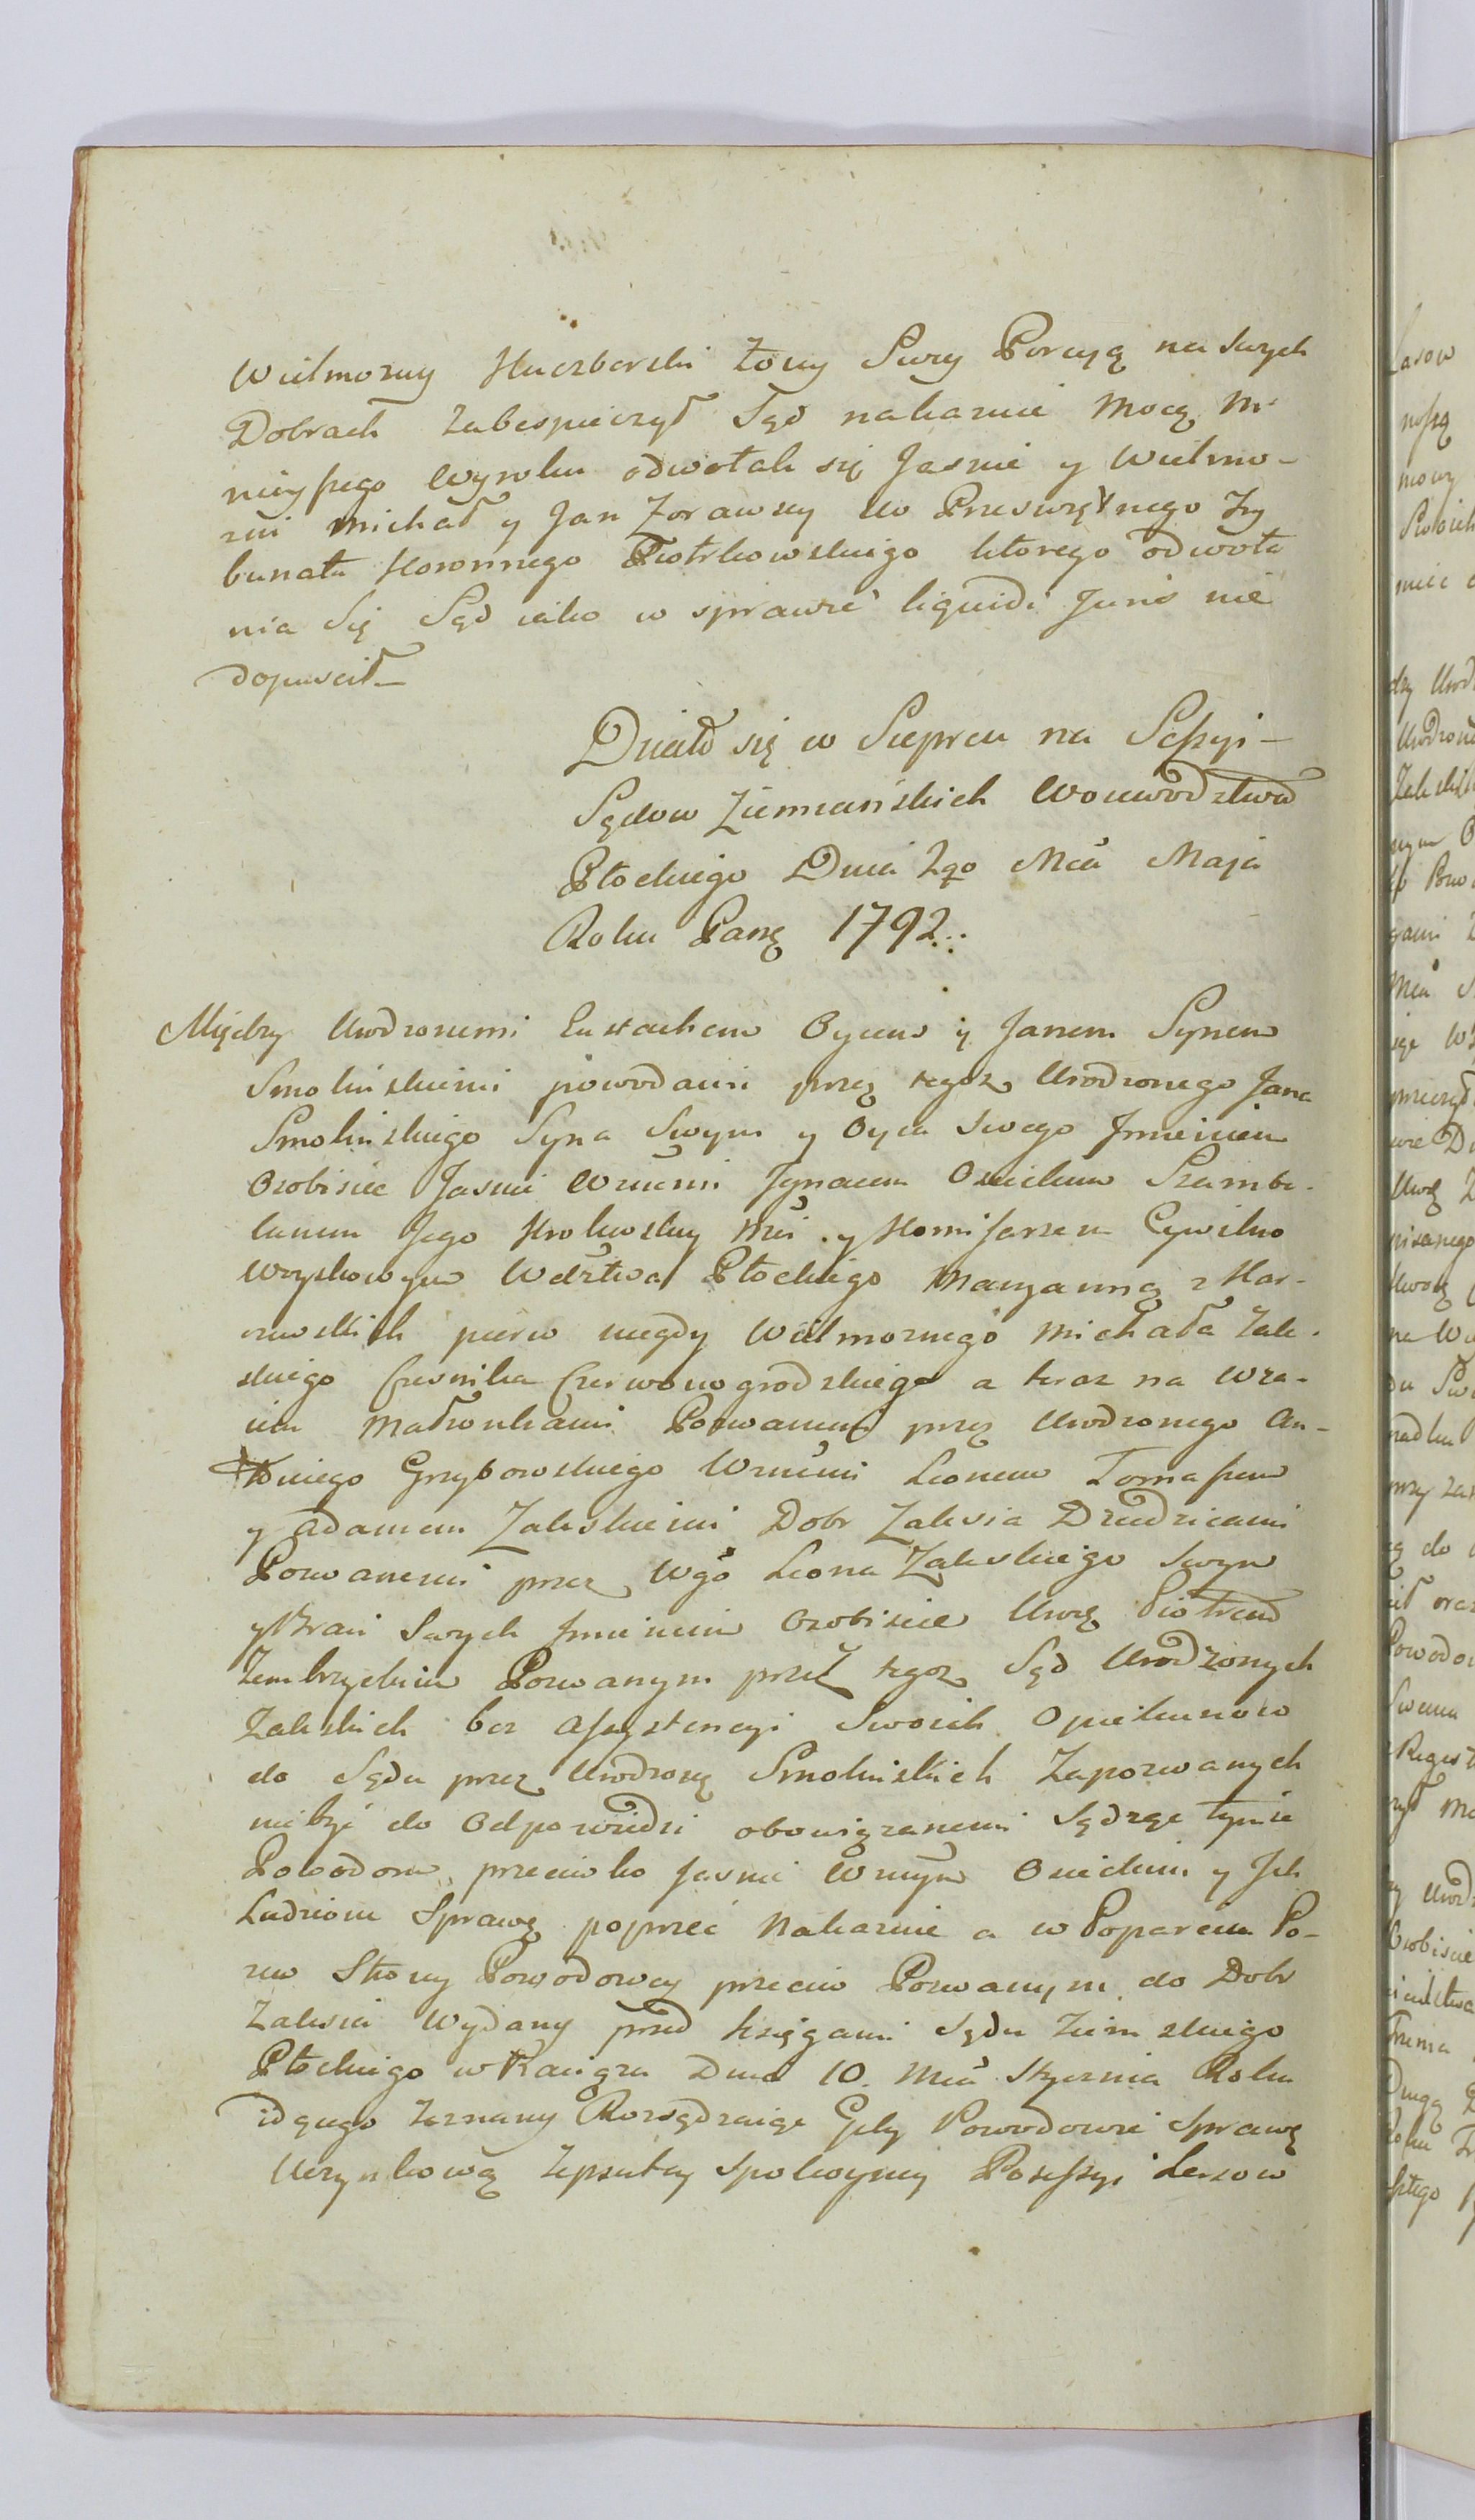 Wielmozny Kuczborski zony Swey Porcyą na Swych
Dobrach Zabespieczył Sąd nakazuie Mocą Ni
nieyszego Wyroku odwołali się Jasnie y Wielmo-
zni Michał y Jan Zorawscy do Przeswiętnego Try
bunału Koronnego Piotrkowskiego ktorego odwoła
nia Się Sąd iako w sprawie liquidi Juris nie
dopuscił
Działo się w Sieprcu na Sessyi
Sądow Ziemianskich Woiewodztwa
Płockiego Dnia 2go Mca Maja
Roku Pansę 1792
Między Urodzonemi Eustachem Oycem y Janem Synem
Smolinskiemi powodami przez tegoz Urodzonego Jana
Smolinskiego Syna Swym y Oyca Swego Jmieniem
Osobiscie Jasnie Wznemi Jgnacem Szambe-
lanem Jego Krolewskiey Mci y Komissarzem Cywilno
Woyskowym Wdztwa Płockiego Maryanną z Kar-
czewskich pierw niegdy Wielmoznego Michała Zale-
skiego Czesnika Czerwonogrodzkiego a teraz na
Małzonkami Pozwanemi przez Urodzonego An-
toniego Grzybowskiego Wznemi Leonem Tomaszem
y Adamem Zaleskiemi Dobr Zalesia Dziedzicami
Pozwanemi przez Wgo Leona Zaleskiego Swym
y Braci Swych Jmieniem Osobiscie Urodz Piotrem
Zembrzyckim Pozwanym przez tegoz Sąd Urodzonych
Zaleskich bez Assystencyi Swoich Opiekunow
do Sądu przez Urodzonę Smolinskich Zapozwanych
niebyc do Odpowiedzi obowiązanemi Sądząc tymze
Powodom przeciwko Jasnie Wznym y Jch
Ludziom Sprawę poprzec Nakazuie a w Poparciu Po-
zew Strony Powodowey przeciw Pozwanym do Dobr
Zalesia Wydany przed księgami Sądu Ziemskiego
Płockiego w Raiązu Dnia 10. Mca Stycznia Roku
idącego Zeznany Rozsądzaiąc Gdy Powodowie Sprawę
Uczynkową Zepsutey Spokoyney Possessyi Lasow